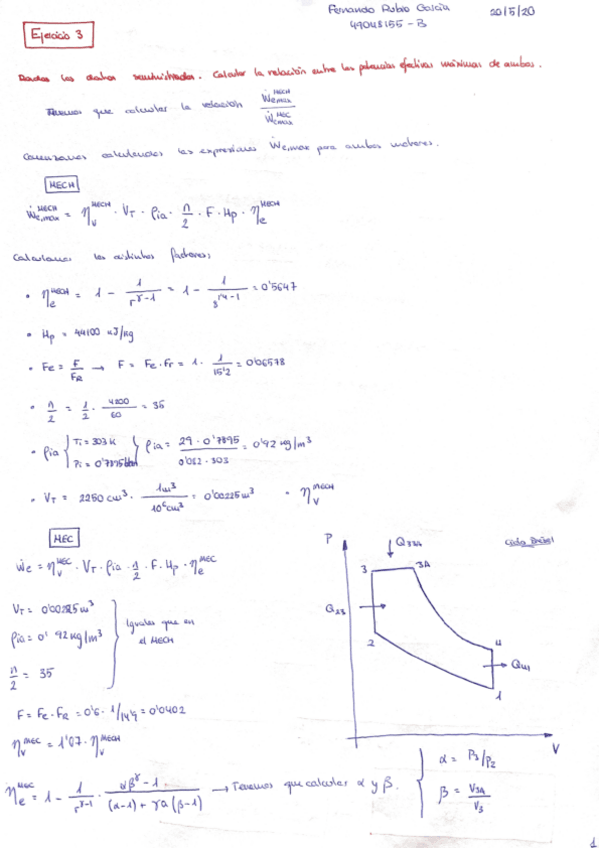 Fernando Rubio García 20/5/20
49048155-B
Ejercicio 3
Dados los datos suministrados. Calcular la relación entre las potencias efectivas máximas de ambos.
Tenemos que calcular la relación Ẇe,max^MECH / Ẇe,max^MEC
Comenzamos calculando las expresiones Ẇe,max para ambos motores.
MECH
Ẇe,max^MECH = ηv^MECH · VT · ρia · n/2 · F · Hp · ηe^MECH
Calculamos los distintos factores:
• ηe^MECH = 1 - 1/r^γ-1 = 1 - 1/8^1'4-1 = 0'5647
• Hp = 44100 kJ/kg
• Fe = F/FR → F = Fe · Fr = 1 · 1/15'2 = 0'06578
• n/2 = 1/2 · 4200/60 = 35
• ρia { Ti = 303 K
Pi = 0'7895 bar } ρia = 29 · 0'7895 / 0'082 · 303 = 0'92 kg/m³
• VT = 2250 cm³ · 1m³/10⁶cm³ = 0'00225 m³ • ηv^MECH
MEC
Ẇe = ηv^MEC · VT · ρia · n/2 · F · Hp · ηe^MEC
VT = 0'00225 m³
ρia = 0'92 kg/m³
n/2 = 35
} Iguales que en
el MECH
F = Fe · FR = 0'6 · 1/14'9 = 0'0402
ηv^MEC = 1'07 · ηv^MECH
ηe^MEC = 1 - 1/r^γ-1 · αβ^γ - 1 / (α-1) + γα(β-1) → Tenemos que calcular α y β.
α = P3/P2
β = V3A/V3
P
Q33A
3
3A
Q23
2
4
Q41
1
V
1